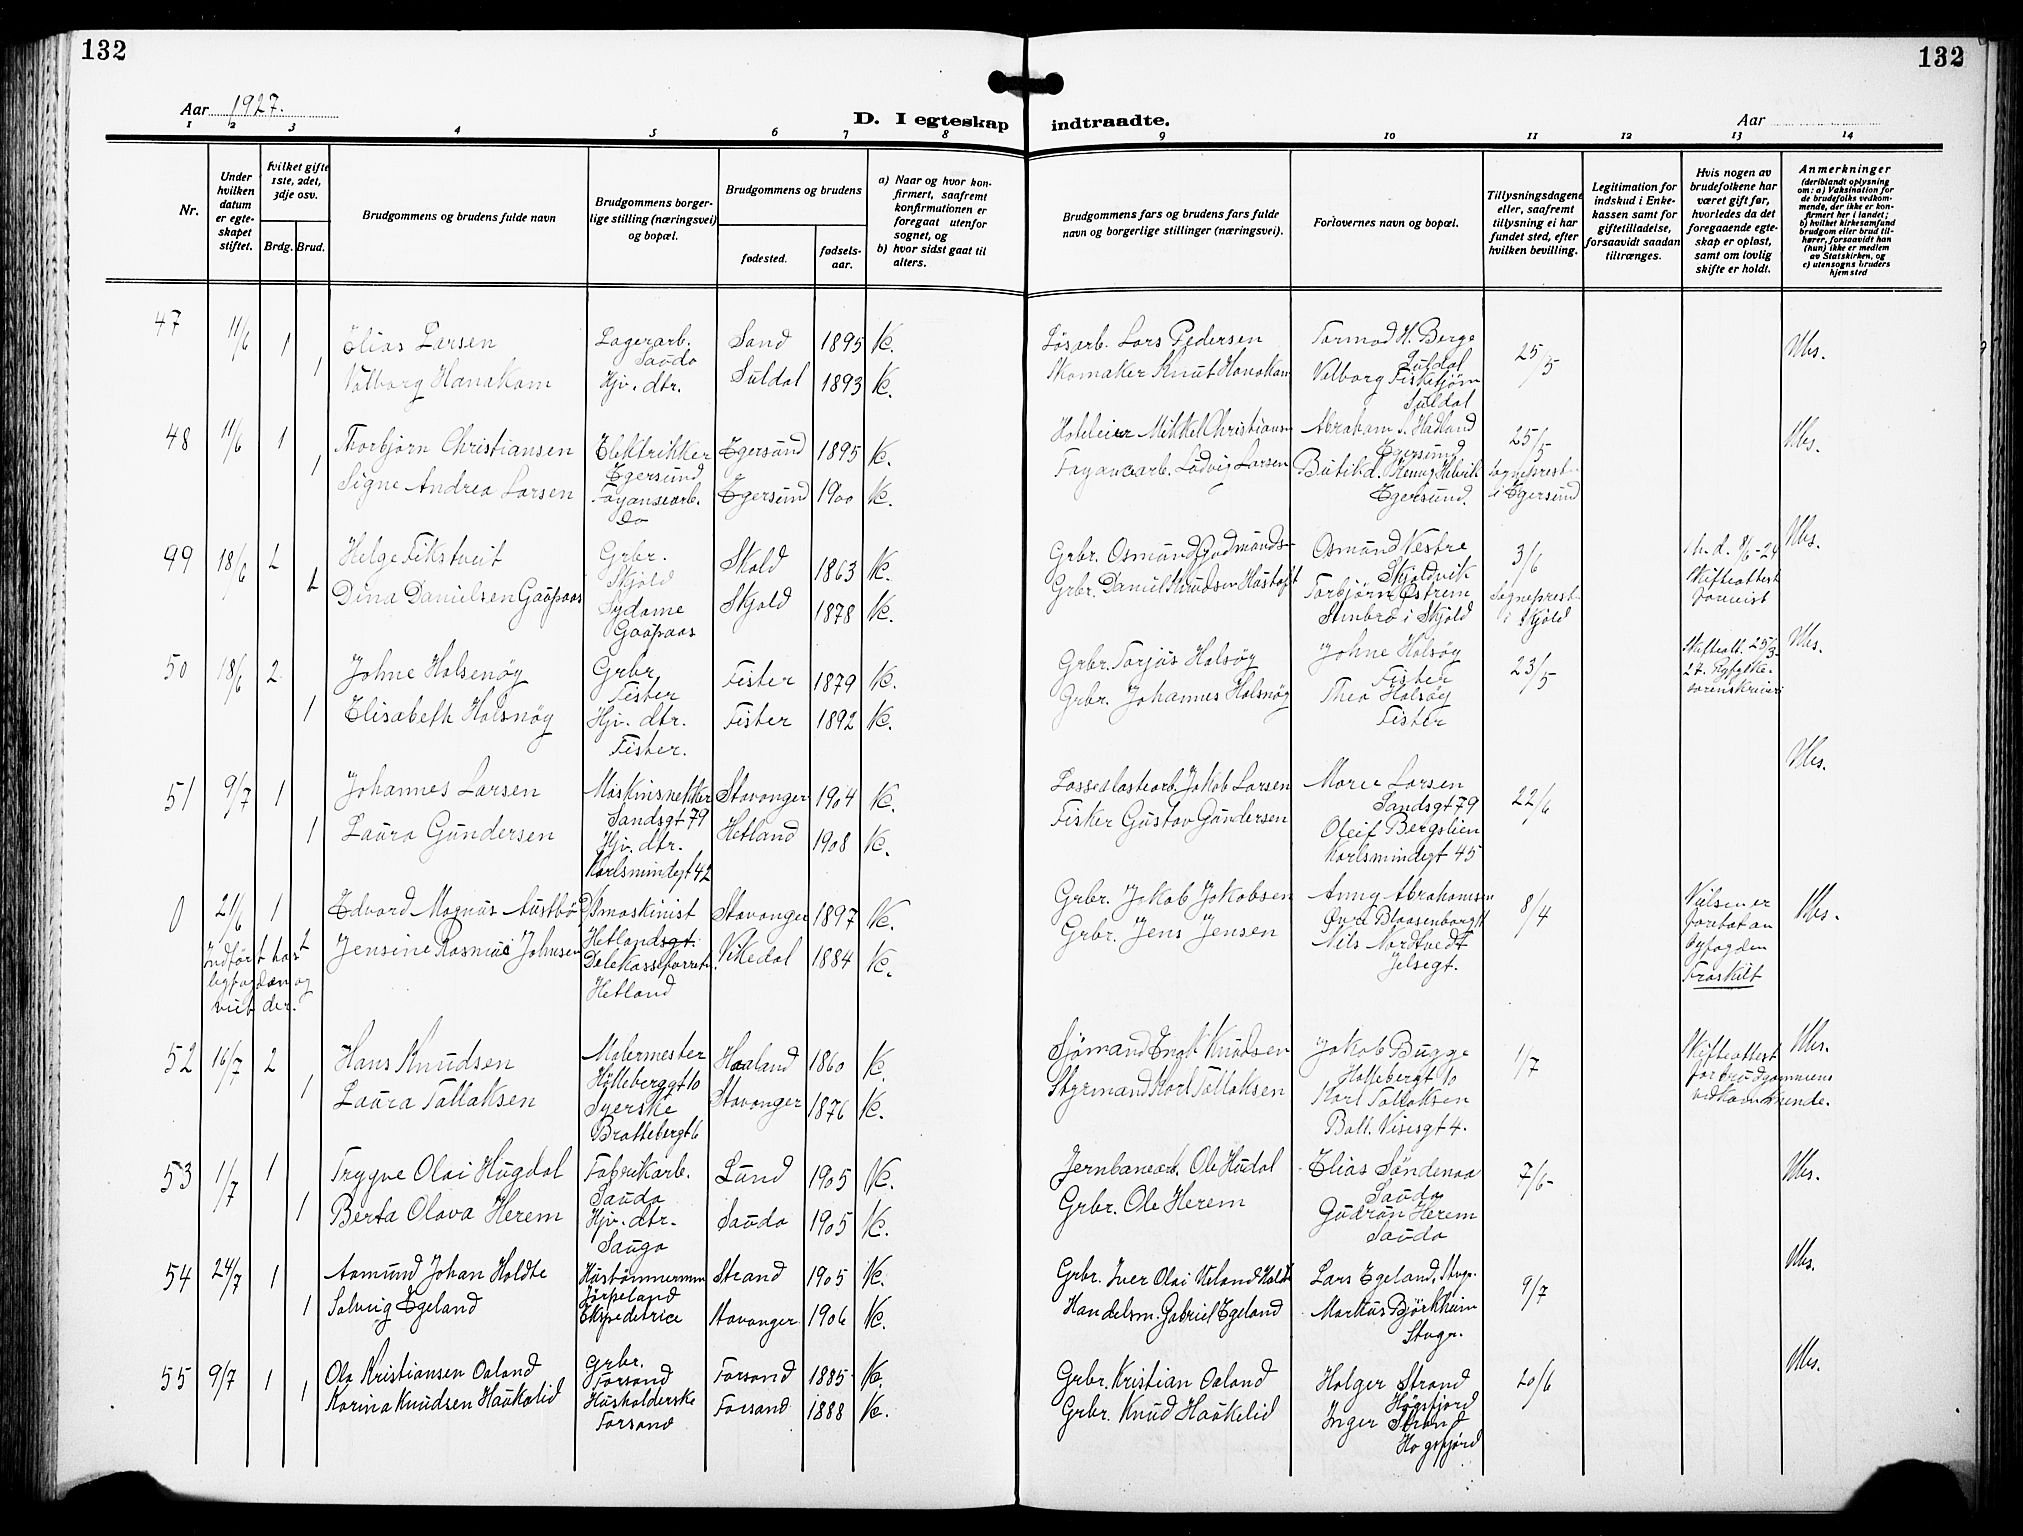 132
132
Aar 1927.
D. I egteskap indtraadte.
Aar
1 2 3 4 5 6 7 8 9 10 11 12 13 14
Nr.
Under hvilken datum er egteskapet stiftet.
hvilket gifte 1ste, 2det, 3dje osv.
Brdg. Brud.
Brudgommens og brudens fulde navn
Brudgommens borgerlige stilling (næringsvei) og bopæl.
Brudgommens og brudens
fødested.
fødselsaar.
a) Naar og hvor konfirmert, saafremt konfirmationen er foregaat utenfor sognet, og
b) hvor sidst gaat til alters.
Brudgommens fars og brudens fars fulde navn og borgerlige stillinger (næringsvei).
Forlovernes navn og bopæl.
Tillysningsdagene eller, saafremt tillysning ei har fundet sted, efter hvilken bevilling.
Legitimation for indskud i Enkekassen samt for giftetilladelse, forsaavidt saadan tiltrænges.
Hvis nogen av brudefolkene har været gift før, hvorledes da det foregaaende egteskap er opløst, samt om lovlig skifte er holdt.
Anmerkninger
(deriblandt oplysning om: a) Vaksination for de brudefolks vedkommende, der ikke er konfirmert her i landet; b) hvilket kirkesamfund brudgom eller brud tilhører, forsaavidt han (hun) ikke er medlem av Statskirken, og c) utensogns bruders hjemsted
47 11/6 1 Elias Larsen Lagerarb. Sauda Sand 1895 K. Løsarb. Lars Pedersen Tormod H. Berge Suldal 25/5
1 Valborg Hanakam Hjv. dtr. Suldal 1893 K. Skomaker Knut Hanakam Valborg Fisketjøm Suldal
48 11/6 1 Thorbjørn Christiansen Elektrikker Egersund Egersund 1895 K. Hoteleier Mikkel Christiansen Abraham S. Hadland Egersund 25/5
1 Signe Andrea Larsen Fayansearb. do Egersund 1900 K. Fayancearb. Ludvig Larsen Butikd. Henny Helvik Egersund. Sogneprest i Egersund
49 18/6 2 Helge Fikstveit Grbr. Skjold Skold 1863 K. Grbr. Osmund Gudmunds- Osmund Vestre Skjoldvik 3/6 Skifteattest
2 Dina Danielsen Gaupaas Sydame Gaapaas Skjold 1878 K. Grbr. Daniel Knudsen Torbjørn Østrem Stenbro i Skjold Sogneprest i Skjold
50 18/6 2 Johne Halsenøy Grbr. Fister Fister 1879 K. Grbr. Torjus Halsøy Johne Halsøy Fister 23/5 Skifteatt. 25/3 27.
1 Elisabeth Halsnøy Hjv. dtr. Fister. Fister 1892 K. Grbr. Johannes Halsnøy Thea Halsøy Fister sorenskriveri
51 9/7 1 Johannes Larsen Maskinsnekker Sandsgt 79 Stavanger 1904 K. Jakob Larsen Marie Larsen Sandsgt 79 22/6
1 Laura Gundersen Hjv. dtr. Karlsmindegt 42 Hetland 1908 K. Fisker Gustav Gundersen Oleif Bergslien Karlsmindegt 45
0 21/6 1 Edvard Magnus Austbø Dsmaskinist Hetlandsgt. Stavanger 1897 K. Grbr. Jakob Jakobsen Anny Abrahamsen Øvre Blaasenborggt 8/4 Nielsen er
Indført hos byfogden og viet der. Jensine Rasmine Johnsen Hetland Vikedal 1884 K. Grbr. Jens Jensen Nils Nordtvedt Jelsegt. byfogden Fraskilt
52 16/7 2 Hans Knudsen Malermester Høllebergt 10 Haaland 1860 K. Sjømand Enok Knudsen Jakob Bugge Høllebergt 10 1/7 Skifteattest for brudgommens vedkommende.
1 Laura Tollaksen Syerske Brattebergt 6 Stavanger 1876 K. Styrmand Karl Tollaksen Karl Tollaksen Ball. Visesgt 4.
53 1/7 1 Trygve Olai Hugdal Fabrikarb. Sauda Lund 1905 K. Jernbanearb. Ole Hudal Elias Søndenaa Sauda 7/6
1 Berta Olava Herem Hjv. dtr. Sauda Sauda 1905 K. Grbr. Ole Herem Gudrun Herem Sauda
54 24/7 1 Aamund Johan Holdte Hustømmermm Jørpeland Strand 1905 K. Grbr. Iver Olai Veland Holdt Lars Egeland, Stvgr. 9/7
1 Solveig Egeland Ekspeditrice Stavanger 1906 K. Handelsm. Gabriel Egeland Markus Bjørkheim Stvgr.
55 9/7 1 Ola Kristiansen Oaland Grbr. Forsand Forsand 1885 K. Grbr. Kristian Oaland Holger Strand Høgsfjord 20/6
1 Karina Knudsen Haukalid Husholderske Forsand Forsand 1888 K. Grbr. Knud Haukelid Inger Strand Høgsfjord